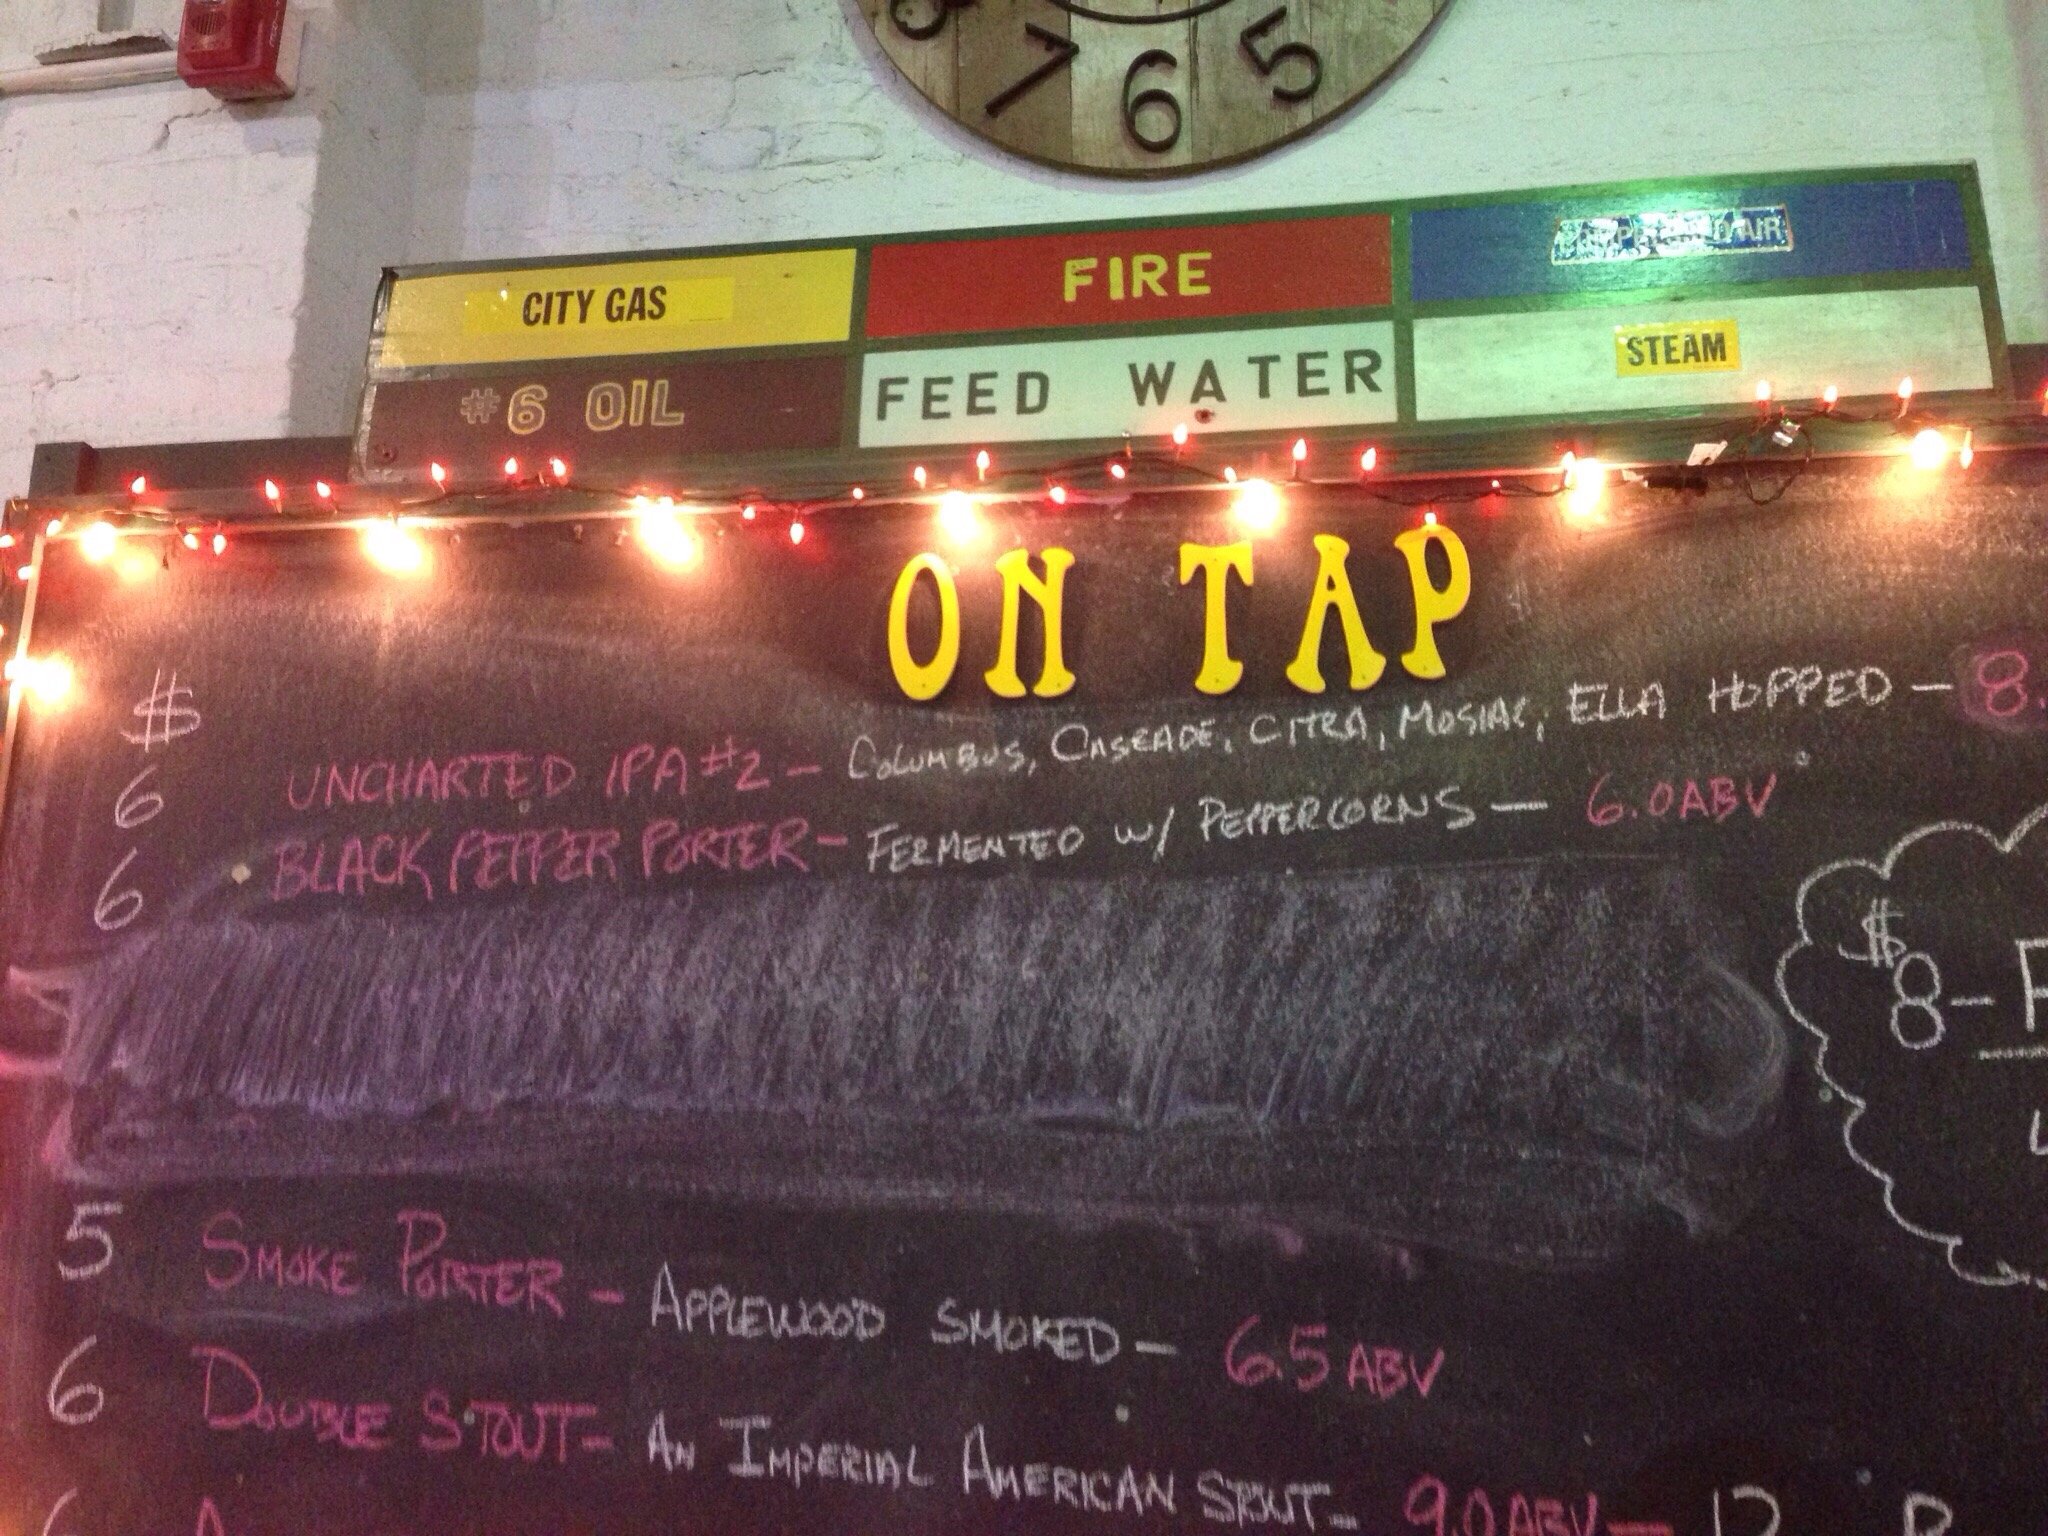 7 6 5
CITY GAS FIRE
#6 OIL FEED WATER STEAM
ON TAP
$
6 UNCHARTED IPA #2 - COLUMBUS, CASEADE, CITRA, MOSIAC, ELLA HOPPED - 8.
6 BLACK PEPPER PORTER - FERMENTED W/ PEPPERCORNS - 6.0 ABV
$
8 -
5 SMOKE PORTER - APPLEWOOD SMOKED - 6.5 ABV
6 DOUBLE STOUT - AN IMPERIAL AMERICAN STOUT - 9.0 ABV -